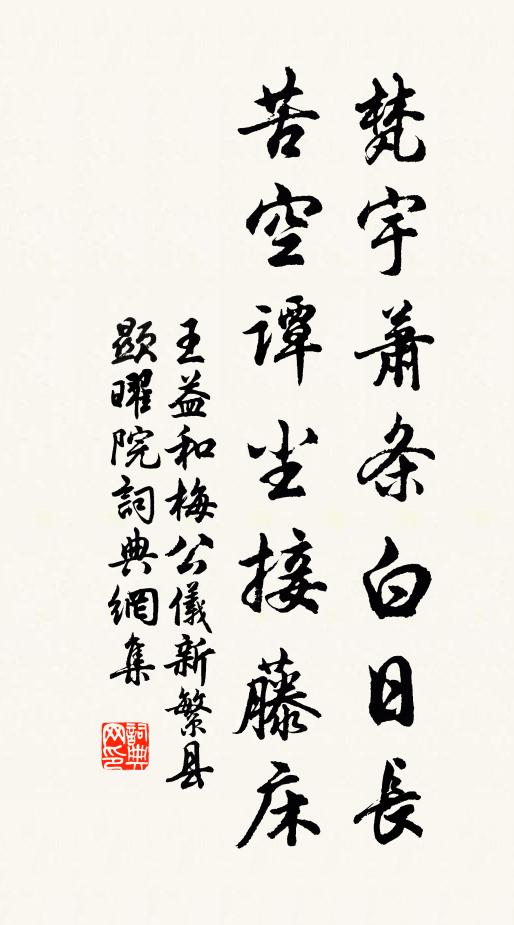 梵宇萧条白日長
苦空谭尘接藤床
王益和梅公儀新繁县
顯曜院詞典網集
詞典网印